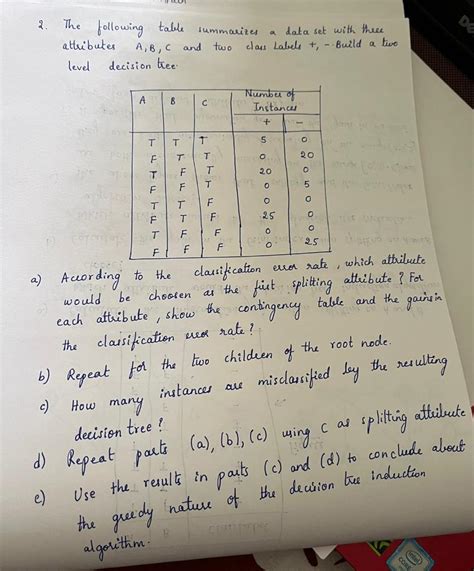 2. The following table summarizes a data set with three
attributes A, B, C and two class Labels +, -. Build a two
level decision tree.
A B C Number of
Instances
+ -
T T T 5 0
F T T 0 20
T F T 20 0
F F T 0 5
T T F 0 0
F T F 25 0
T F F 0 0
F F F 0 25
a) According to the classification error rate, which attribute
would be choosen as the first splitting attribute? For
each attribute, show the contingency table and the gains in
the classification error rate?
b) Repeat for the two children of the root node.
c) How many instances are misclassified by the resulting
decision tree?
d) Repeat parts (a), (b), (c) using C as splitting attribute
e) Use the results in parts (c) and (d) to conclude about
the greedy nature of the decision tree induction
algorithm.